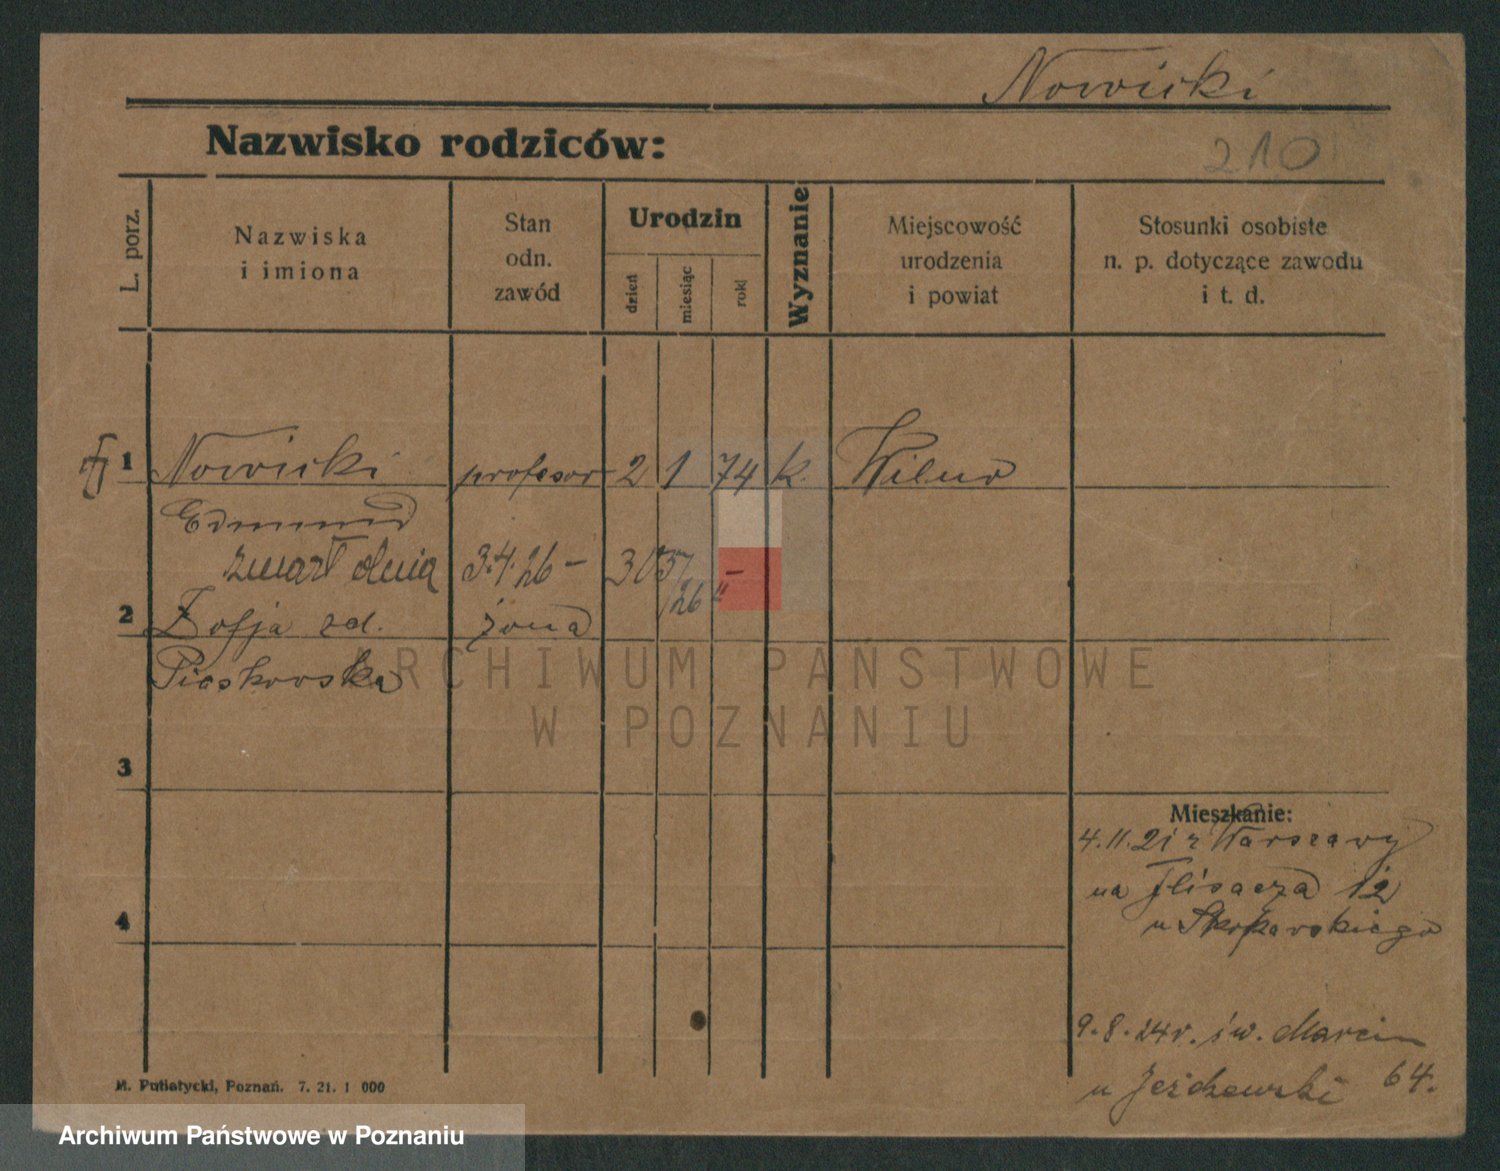 Nowicki
Nazwisko rodziców:
210
L. porz.
Nazwiska
i imiona
Stan
odn.
zawód
Urodzin
dzień
miesiąc
rok
Wyznanie
Miejscowość
urodzenia
i powiat
Stosunki osobiste
n. p. dotyczące zawodu
i t. d.
1 Nowicki profesor 2 1 74 k. Wilno
Edmund
zmarł dnia 3.4.26 –
2 Zofja zd. żona
Piaskowska
ARCHIWUM PAŃSTWOWE
W POZNANIU
3
4
Mieszkanie:
4.11.21 z Warszawy
na Flisacza 12
u
9.8.24 r. św. Marcin
64.
u Jeżdzewski
M. Putiatycki, Poznań. 7. 21. 1 000
Archiwum Państwowe w Poznaniu